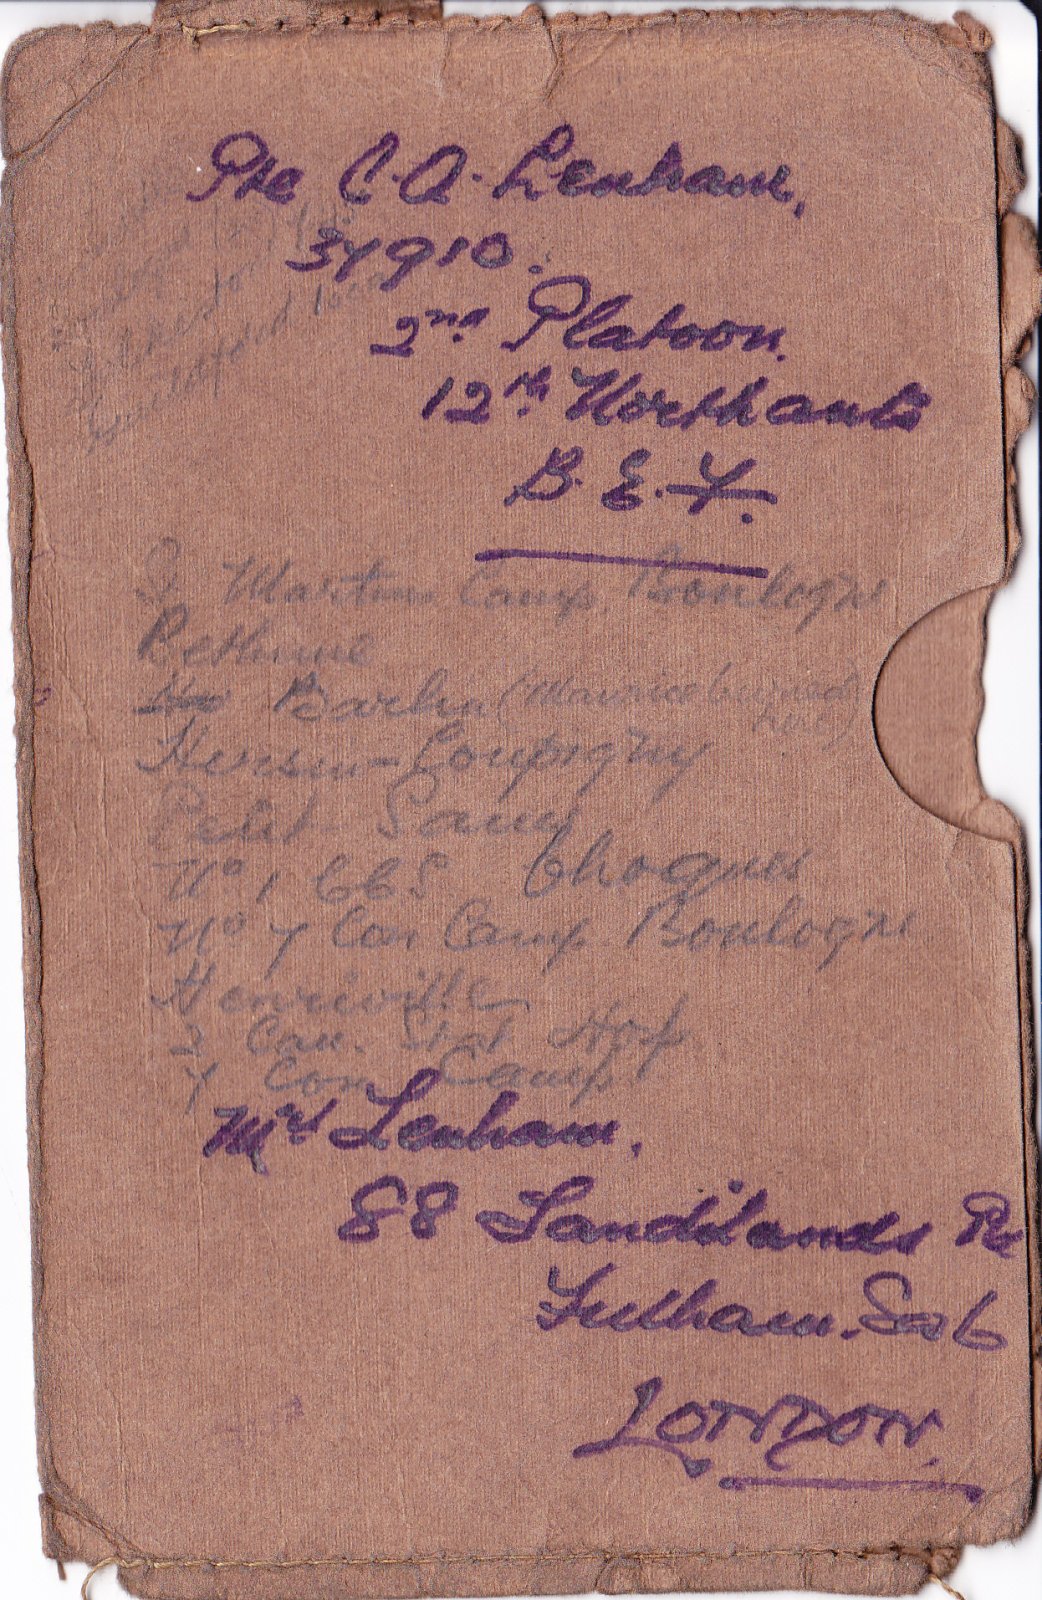 Pte C. A. Lenham,
37910.
2nd Platoon.
12th Northants
B. E. F.
St Martin Camp. Boulogne
Bethune
Barlin (Maurice buried
here)
Hersin-Coupigny
Petit Sains
No 1 CCS Choques
No 7 Con Camp Boulogne
Henriville
3 Can. Stat Hop
7 Con Camp
Mrs Lenham.
88 Sandilands Rd
Fulham. SW6
LONDON.